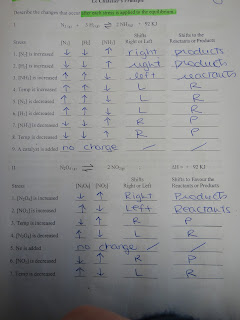 Le Châtelier's Principle
Describe the changes that occur after each stress is applied to the equilibrium.
N₂(g) + 3 H₂(g) ⇌ 2 NH₃(g) + 92 KJ
Shifts Shifts to the
Stress [N₂] [H₂] [NH₃] Right or Left Reactants or Products
1. [N₂] is increased ↓ ↑ right products
2. [H₂] is increased ↓ ↑ right products
3. [NH₃] is increased ↑ ↑ left reactants
4. Temp is increased ↑ ↑ ↓ L R
5. [N₂] is decreased L R
6. [H₂] is decreased L R
7. [NH₃] is decreased ↓ ↓ R P
8. Temp is decreased ↓ ↓ ↑ R P
9. A catalyst is added no change / /
II. N₂O₄(g) ⇌ 2 NO₂(g) ΔH = + 92 KJ
Shifts Shifts to Favour the
Stress [N₂O₄] [NO₂] Right or Left Reactants or Products
1. [N₂O₄] is increased ↑ Right Products
2. [NO₂] is increased ↑ Left Reactants
3. Temp is increased ↓ ↑ R P
4. [N₂O₄] is decreased L R
5. Ne is added no change / /
6. [NO₂] is decreased ↓ R P
7. Temp is decreased ↑ ↓ L R